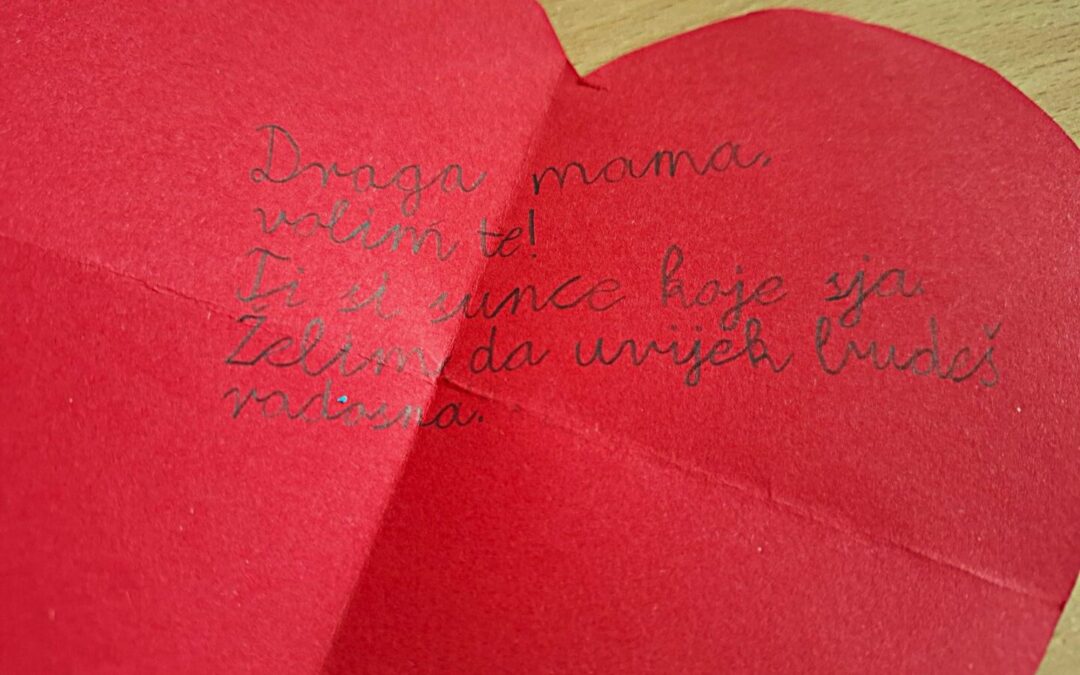 Draga mama,
volim te!
Ti si sunce koje sja.
Želim da uvijek budeš
radosna.